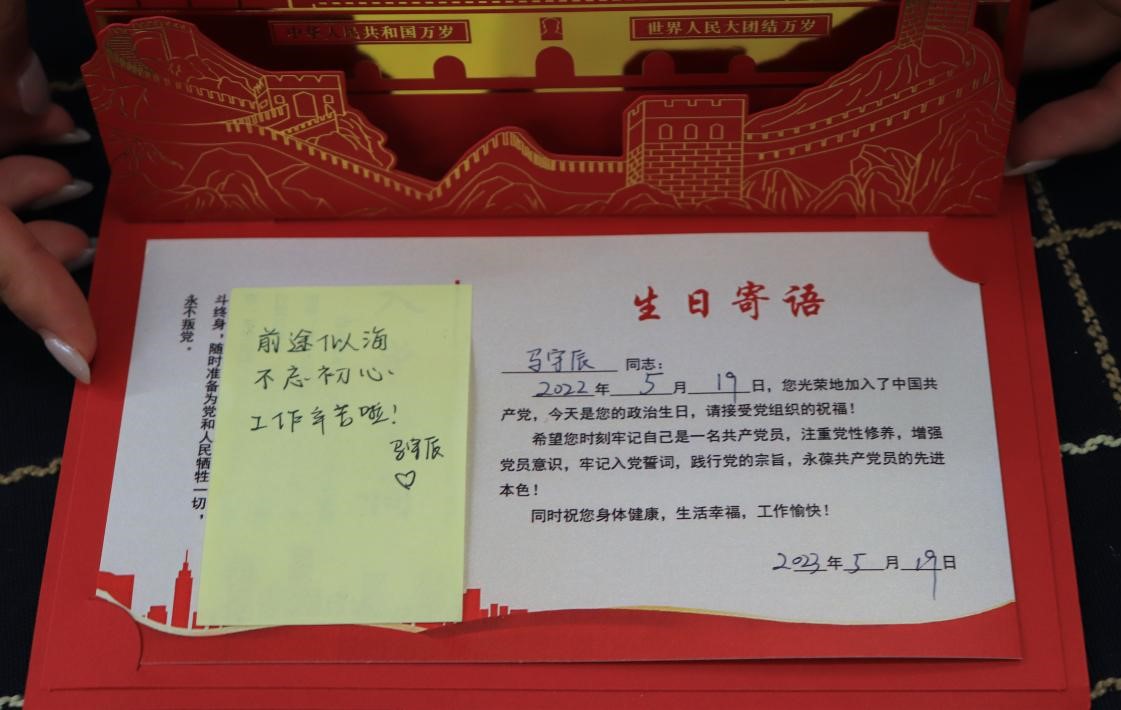 中华人民共和国万岁
世界人民大团结万岁
斗终身，随时准备为党和人民牺牲一切，
永不叛党。
前途似海
不忘初心
工作辛苦啦！
马守辰
生日寄语
马守辰 同志：
2022年 5 月 19 日，您光荣地加入了中国共
产党，今天是您的政治生日，请接受党组织的祝福！
希望您时刻牢记自己是一名共产党员，注重党性修养，增强
党员意识，牢记入党誓词，践行党的宗旨，永葆共产党员的先进
本色！
同时祝您身体健康，生活幸福，工作愉快！
2023年 5 月 19 日